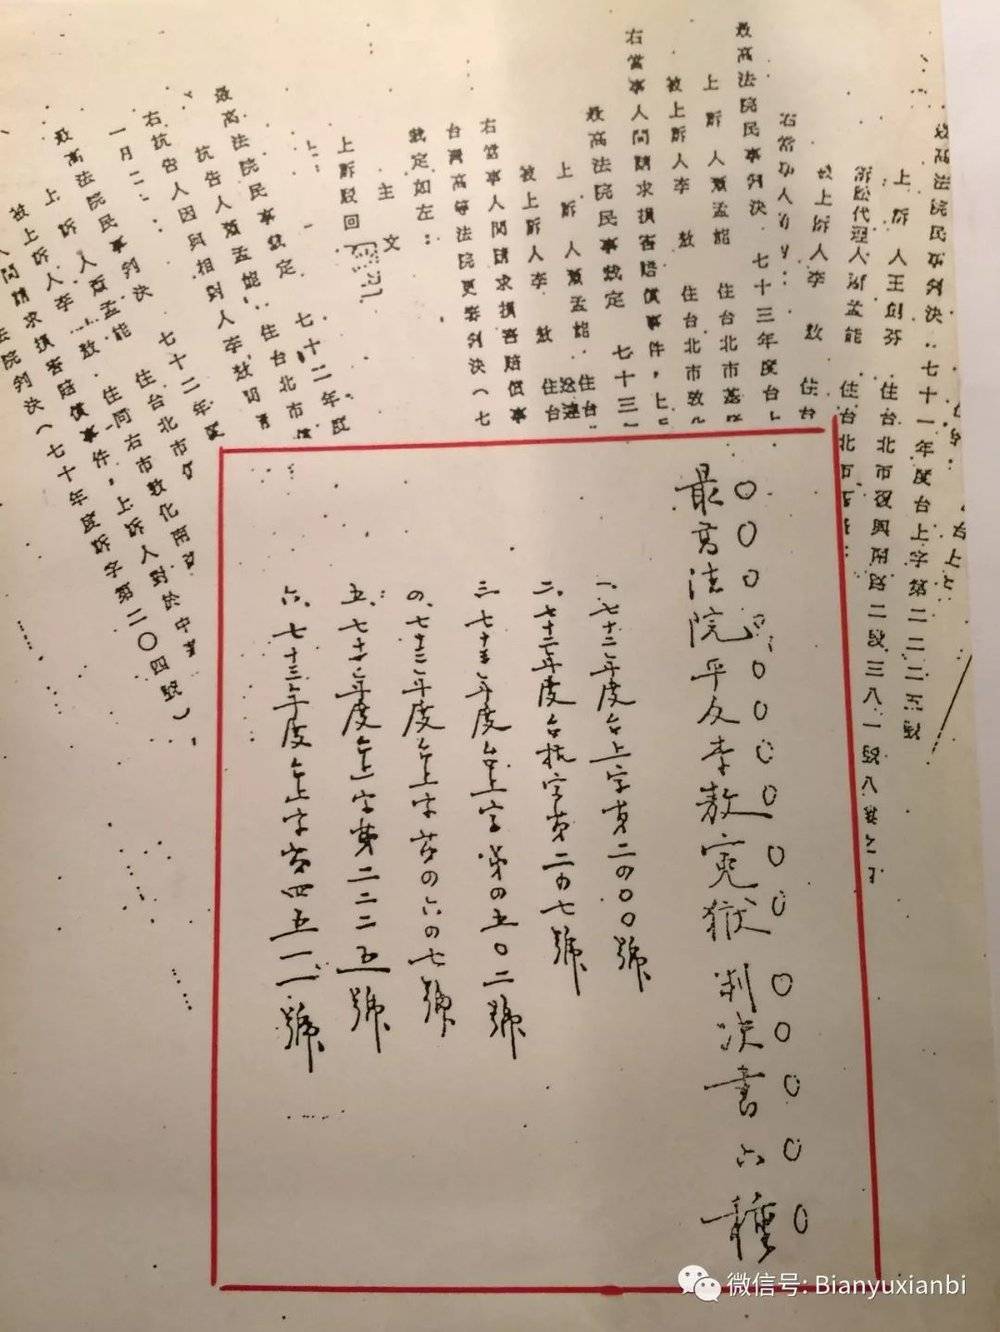 最高法院民事判決 七十一年度台上字第二二二五號
上 訴 人王劍芬 住台北市復興南路二段三八一號八
訴訟代理人蕭孟能 住台北市
被上訴人李 敖 住台
最高法院民事判決 七十三年度台上
上 訴 人蕭孟能 住台北市
被上訴人李 敖 住台北市敦化
右當事人間請求損害賠償事件,上
最高法院民事裁定 七十三
上 訴 人蕭孟能 住台
被上訴人李 敖 住台
右當事人間請求損害賠償事
台灣高等法院更審判決(七
裁定如左:
主 文
上訴駁回
最高法院民事裁定 七十二年度
抗告人蕭孟能 住台北市
右抗告人因與相對人李敖間
一月二
最高法院民事判決 七十二年度
上 訴 人蕭孟能 住台北市
被上訴人李 敖 住同右市敦化南
人間請求損害賠償事件,上訴人對於中
法院判決(七十年度訴字第二〇四號)
最高法院平反李敖冤獄判決書六種
一、七十二年度台上字第二〇〇號
二、七十二年度台抗字第二四七號
三、七十三年度台上字第四五〇二號
四、七十三年度台上字第四六四七號
五、七十一年度台上字第二二二五號
六、七十三年度台上字第四五一一號
微信号: Bianyuxianbi